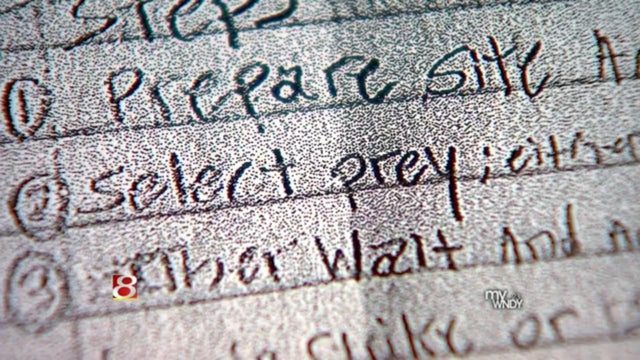 Steps
① Prepare site
② select prey; either
③ either Wait And
strike or
8
my WNDY